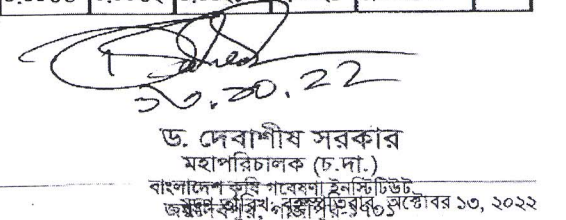 ১৩.১০.২২
ড. দেবাশীষ সরকার
মহাপরিচালক (চ.দা.)
বাংলাদেশ কৃষি গবেষণা ইনস্টিটিউট
জয়দেবপুর, গাজীপুর-১৭০১
তারিখ: বৃহস্পতিবার, অক্টোবর ১৩, ২০২২